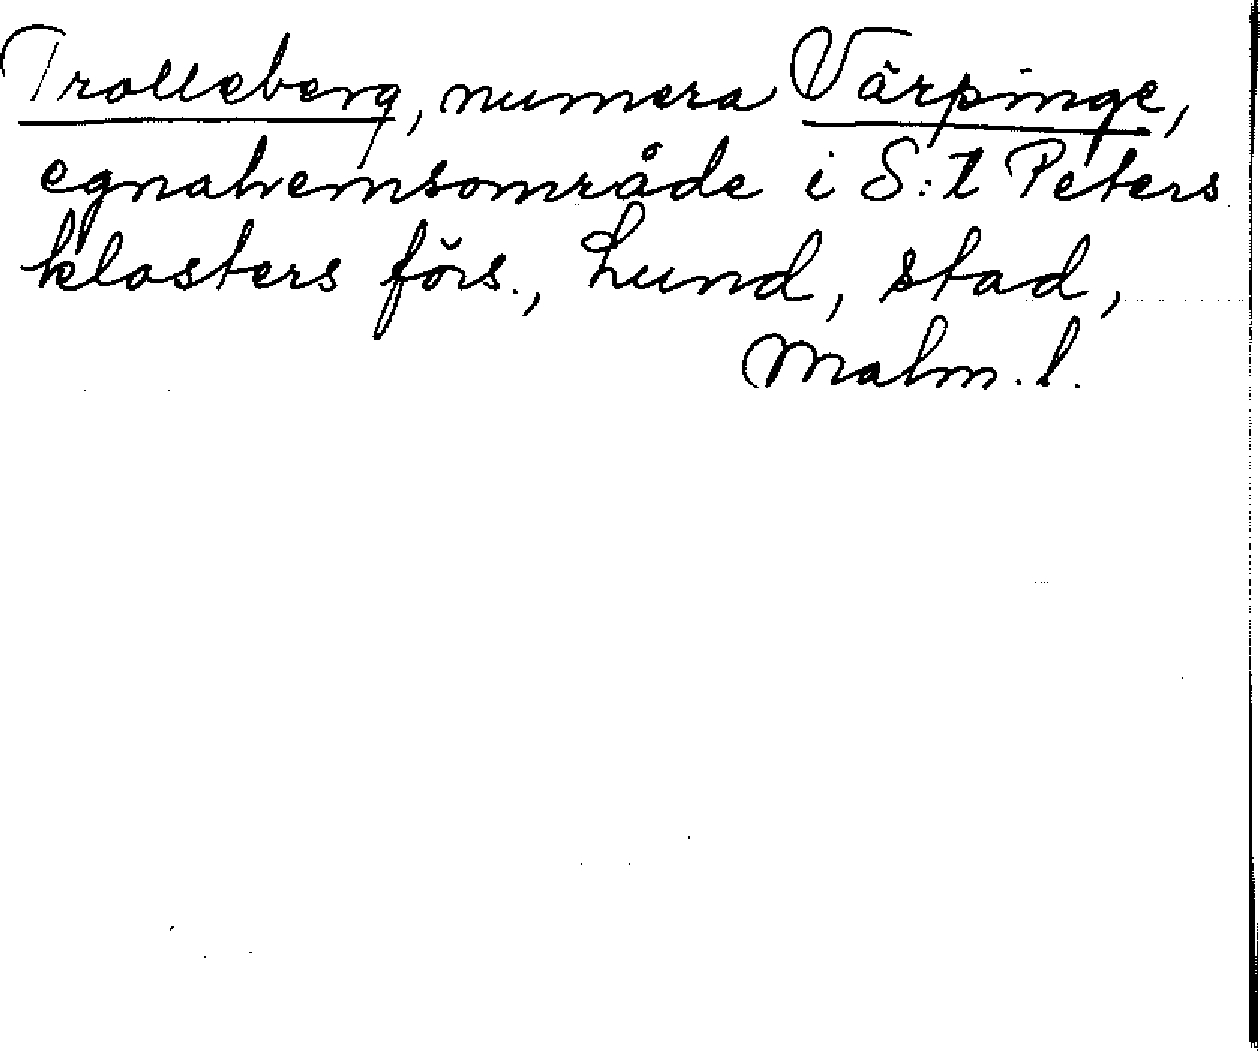 Trolleberg, numera Värpinge,
egnahemsområde i S:t Peters
klosters förs., Lund, stad,
Malm. l.